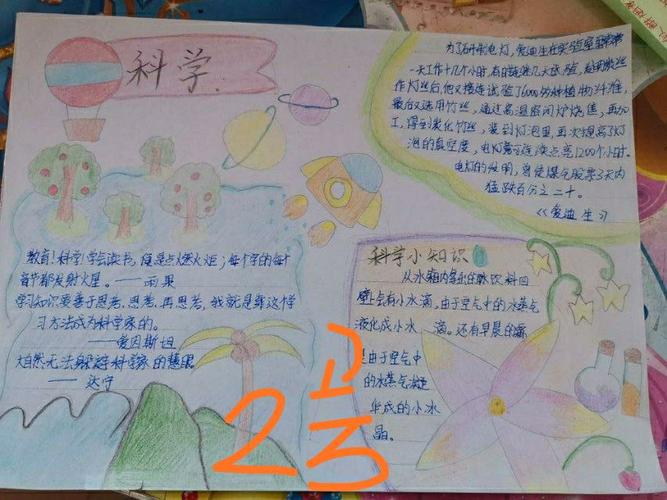 科学
为了研制电灯，爱迪生在实验室常常
一天工作十几个小时，有时连续几天试验，发明炭丝
作灯丝后，他又接连试验了6000多种植物纤维，
最后又选用竹丝，通过高温密闭炉烧焦，再加
工，得到炭化竹丝，装到灯泡里，再次提高了灯
泡的真空度，电灯竟可连续点亮1200个小时。
电灯的发明，曾使煤气股票3天内
猛跌百分之二十。
《爱迪生》
教育！科学！学会读书，便是点燃火炬；每个字的每个
音节都发射火星。——雨果
学习知识要善于思考，思考，再思考，我就是靠这个学
习方法成为科学家的。
——爱因斯坦
大自然无法躲避科学家的慧眼
——达
科学小知识
从冰箱内拿出的冰饮料
壁上有小水滴，由于空气中的水蒸气
液化成小水滴。还有早晨的霜
是由于空气中
的水蒸气凝
华成的小冰
晶。
2
3